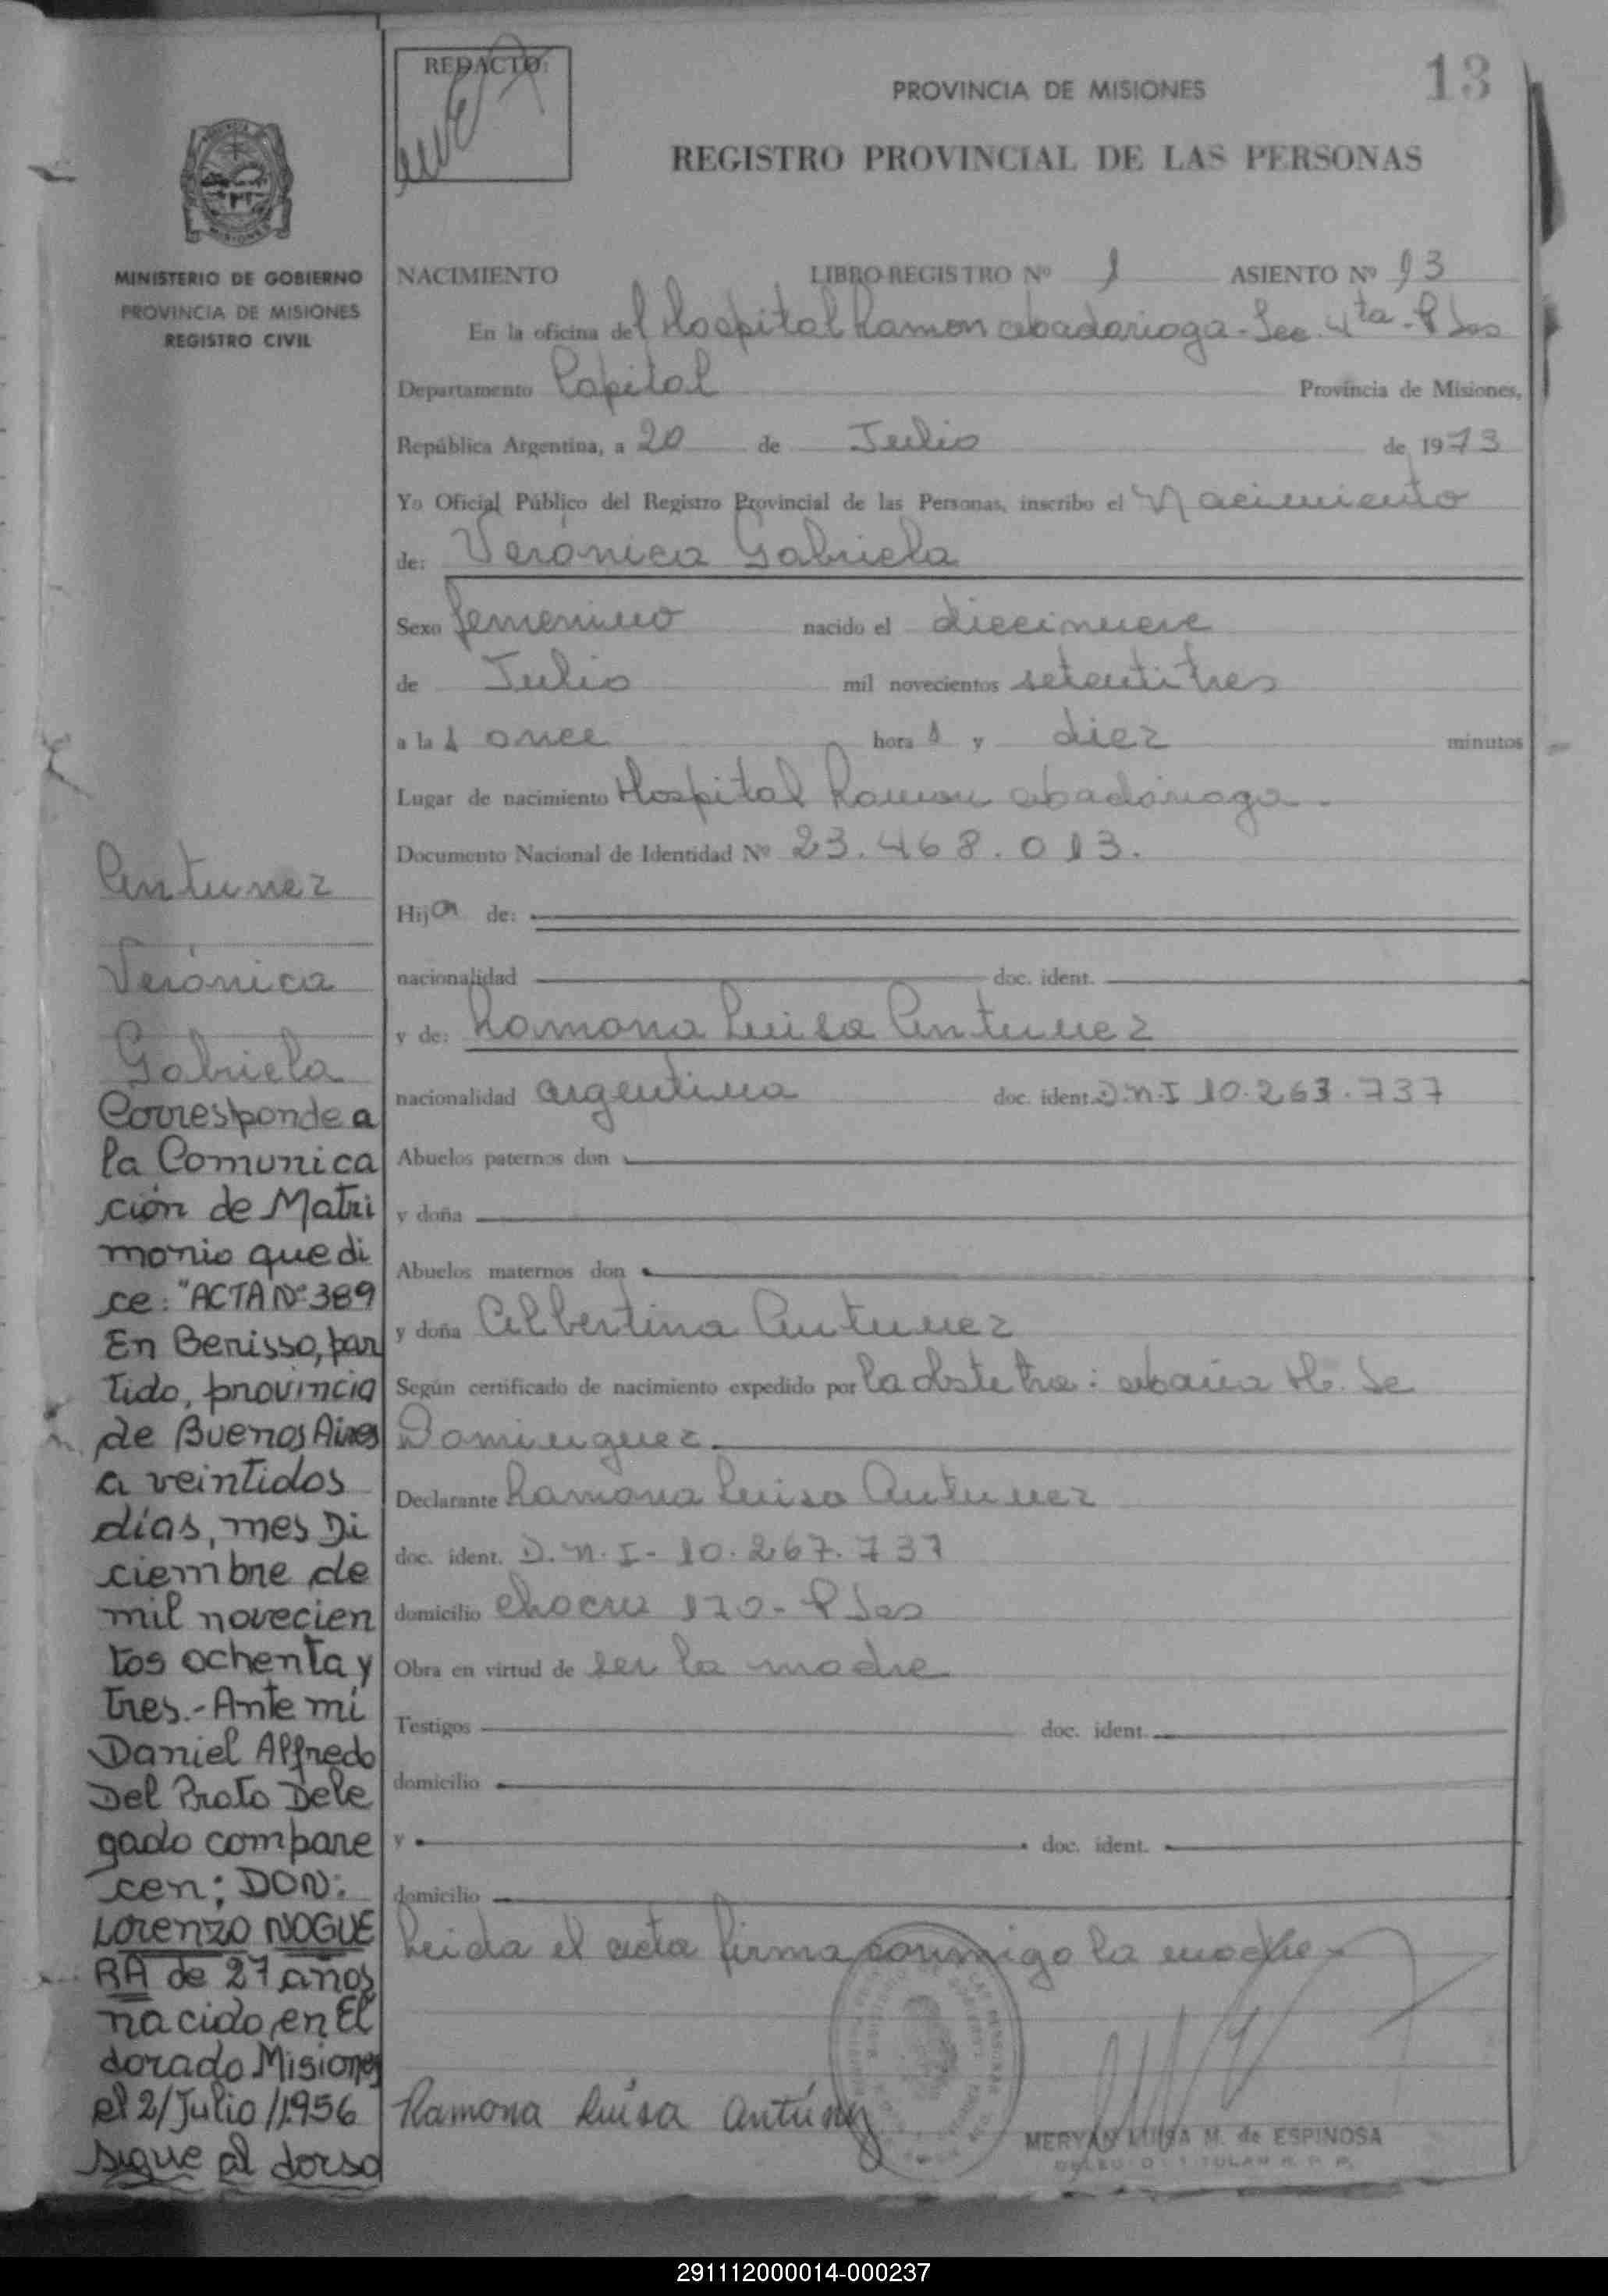 REDACTO:
13
PROVINCIA DE MISIONES
REGISTRO PROVINCIAL DE LAS PERSONAS
MISIONES
MINISTERIO DE GOBIERNO
PROVINCIA DE MISIONES
REGISTRO CIVIL
NACIMIENTO LIBRO-REGISTRO Nº 1 ASIENTO Nº 13
En la oficina del Hospital Ramon abadarioga - Sec. 4ta - P Sas
Departamento Capital Provincia de Misiones,
República Argentina, a 20 de Julio de 1973
Yo Oficial Público del Registro Provincial de las Personas, inscribo el Nacimiento
de: Verónica Gabriela
Sexo femenino nacido el diecinueve
de Julio mil novecientos setentitres
a las once horas y diez minutos
Lugar de nacimiento Hospital Ramon abadarioga.
Documento Nacional de Identidad Nº 23.468.013.
Hija de:
nacionalidad doc. ident.
y de: Ramona Luisa Antunez
nacionalidad argentina doc. ident. D.N.I 10.263.737
Abuelos paternos don
y doña
Abuelos maternos don
y doña Albertina Antunez
Según certificado de nacimiento expedido por la obstetra: H. de
Dominguez
Declarante Ramona Luisa Antunez
doc. ident. D.N.I - 10.267.737
domicilio 170 - P Sas
Obra en virtud de ser la madre
Testigos doc. ident.
domicilio
y doc. ident.
domicilio
Leida el acta firma conmigo la madre
Ramona Luisa Antúnez
MERYAN LUISA M. de ESPINOSA
Antunez
Verónica
Gabriela
Corresponde a
la Comunica
ción de Matri
monio que di
ce: "ACTA Nº 389
En Berisso, par
tido, provincia
de Buenos Aires
a veintidos
días, mes Di
ciembre de
mil novecien
tos ochenta y
tres.- Ante mí
Daniel Alfredo
Del Prato Dele
gado compare
cen; DON:
LORENZO NOGUE
RA de 27 años
nacido en El
dorado Misiones
el 2/Julio/1956
sigue al dorso
291112000014-000237